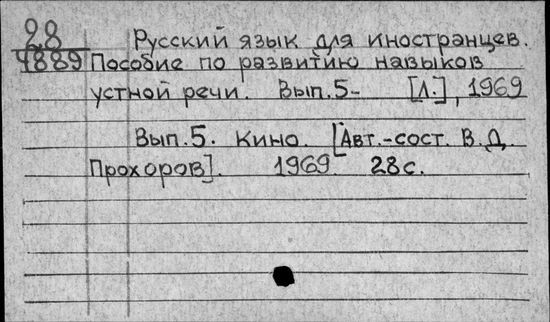 28 Русский язык для иностранцев.
4889 Пособие по развитию навыков
устной речи. Вып.5- [Л.], 1969
Вып.5. Кино. [Авт.-сост. В.Д.
Прохоров]. 1969. 28с.